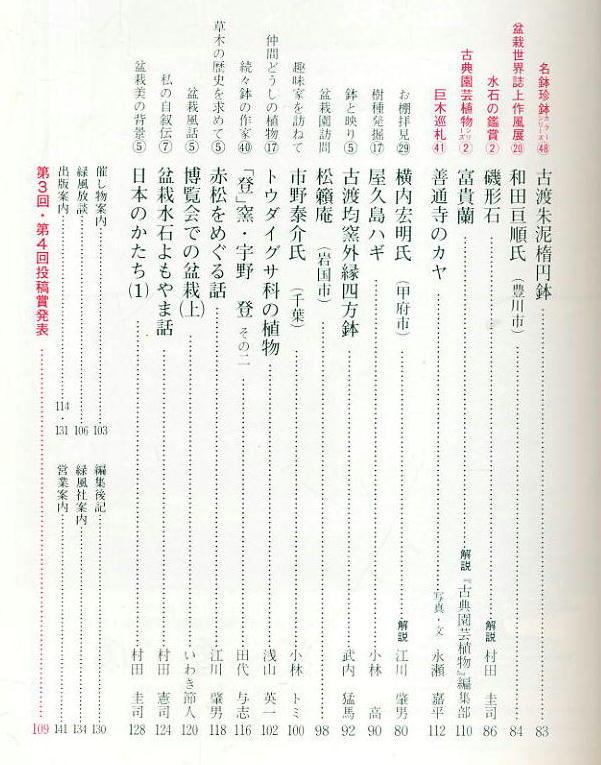 名鉢珍鉢カラーシリーズ㊽ 古渡朱泥楕円鉢 83
盆栽世界誌上作風展⑳ 和田亘順氏（豊川市） 84
水石の鑑賞② 磯形石 解説 村田 圭司 86
古典園芸植物シリーズ② 富貴蘭 解説『古典園芸植物』編集部 110
巨木巡札㊶ 善通寺のカヤ 写真・文 永瀬 嘉平 112
お棚拝見㉙ 横内宏明氏（甲府市） 解説 江川 肇男 80
樹種発掘⑰ 屋久島ハギ 小林 高 90
鉢と映り⑤ 古渡均窯外縁四方鉢 武内 猛馬 92
盆栽園訪問 松籟庵（岩国市） 98
趣味家を訪ねて 市野泰介氏（千葉） 小林 トミ 100
仲間どうしの植物⑰ トウダイグサ科の植物 浅山 英一 102
続々鉢の作家㊵ 「登」窯・宇野 登 その二 田代 与志 116
草木の歴史を求めて⑤ 赤松をめぐる話 江川 肇男 118
盆栽風話⑤ 博覧会での盆栽(上) いわき節人 120
私の自叙伝⑦ 盆栽水石よもやま話 村田 憲司 124
盆栽美の背景⑤ 日本のかたち(1) 村田 圭司 128
催し物案内 103 編集後記 130
緑風放談 106 緑風社案内 134
出版案内 114・131 営業案内 141
第3回・第4回投稿賞発表 109